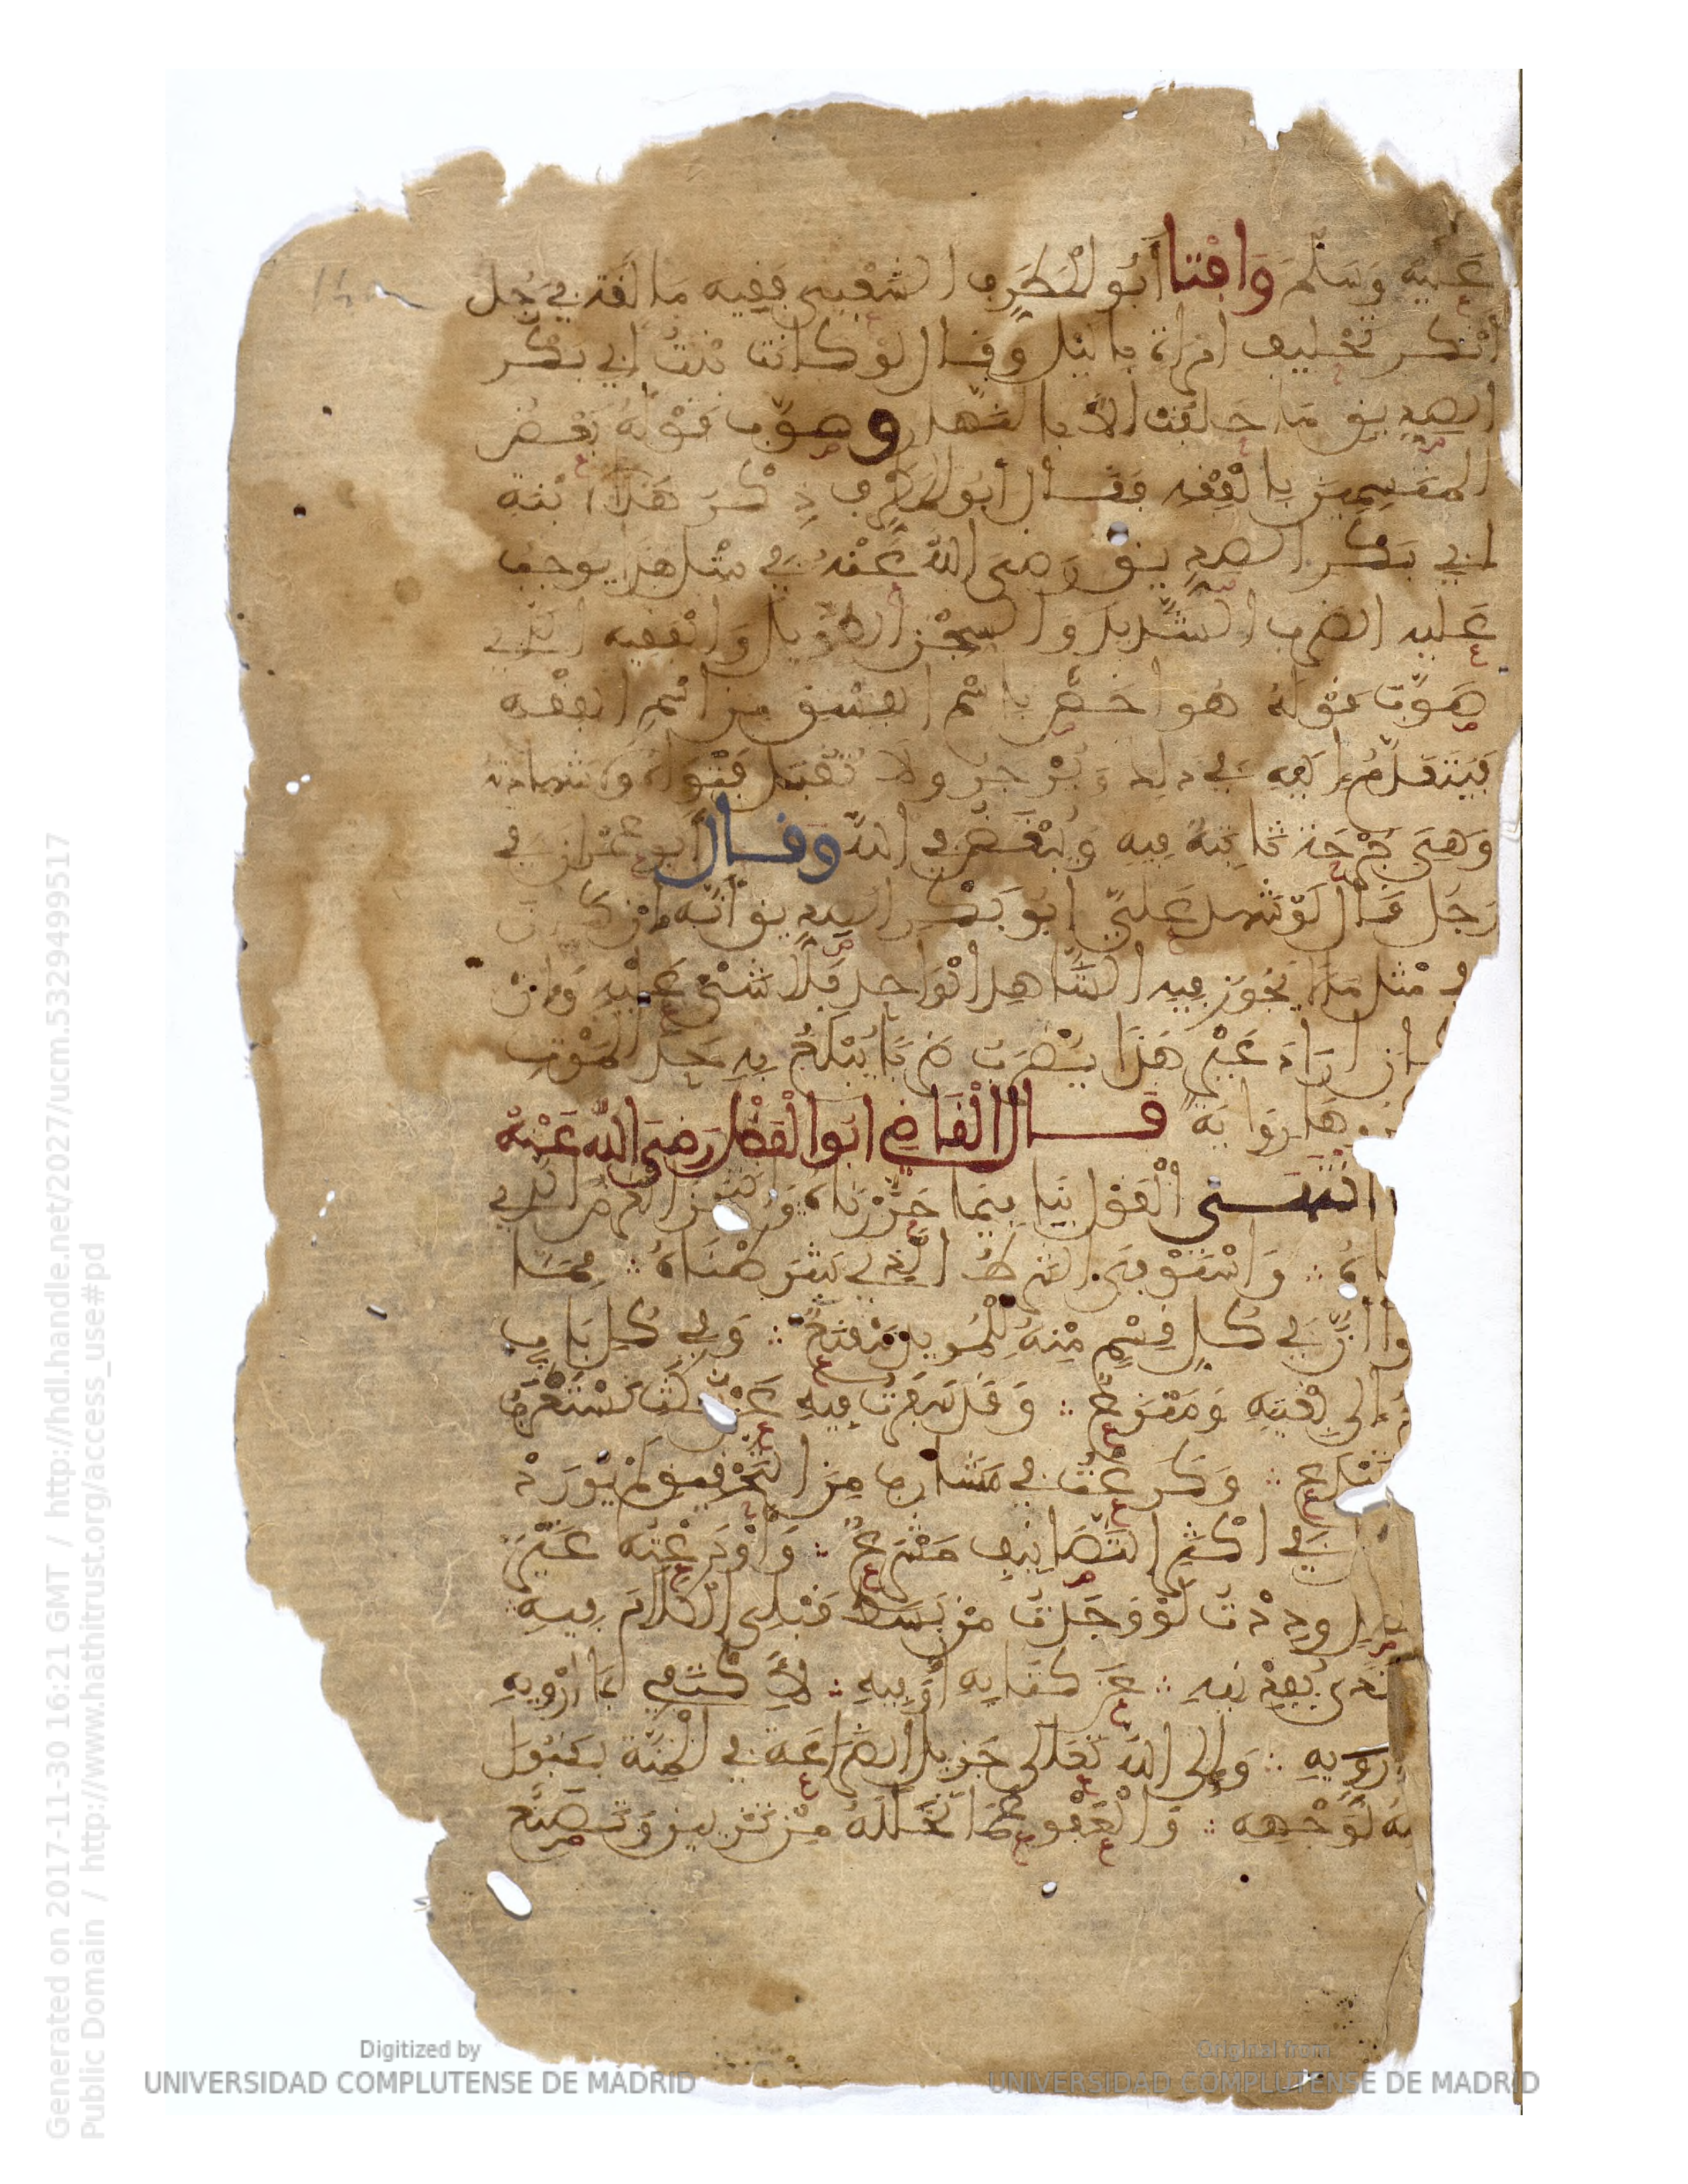 عَلَيْهِ وَسَلَّمَ وَافْتَا أَبُو الْمُطَرِّفِ الشَّعْبِيُّ فَقِيهُ مَالَقَةَ فِي رَجُل
أَنْكَرَ تَحْلِيفَ امْرَأَةٍ بِالَّيْلِ وَقَالَ لَوْ كَانَتْ بِنْتُ أَبِي بَكْرٍ
الصِّدِّيقِ مَا حَلَفَتْ إِلَّا بِالنَّهَارِ وَصَوَّبَ قَوْلَهُ بَعْضُ
الْمُتَّسِمِينَ بِالْفِقْهِ فَقَالَ أَبُو الْمُطَرِّفِ ذِكْرُ هَذَا لِابْنَةِ
أَبِي بَكْرٍ الصِّدِّيقِ رَضِيَ اللَّهُ عَنْهُ فِي مِثْلِ هَذَا يُوجِبُ
عَلَيْهِ الضَّرْبَ الشَّدِيدَ وَالسِّجْنَ الطَّوِيلَ وَالْفَقِيهُ الَّذِي
صَوَّبَ قَوْلَهُ هُوَ أَخَصُّ بِاسْمِ الْفِسْقِ مِنِ اسْمِ الْفِقْهِ
فَيُتَقَدَّمُ إِلَيْهِ فِي ذَلِكَ وَيُزْجَرُ وَلَا تُقْبَلُ فَتْوَاهُ وَلَا شَهَادَتُهُ
وَهِيَ جُرْحَةٌ ثَابِتَةٌ فِيهِ وَيُبْغَضُ فِي اللَّهِ وَقَالَ أَبُو عِمْرَانَ فِي
رَجُلٍ قَالَ لَوْ شَهِدَ عَلَيَّ أَبُو بَكْرٍ الصِّدِّيقُ أَنَّهُ إِنْ كَانَتْ
فِي مِثْلِ مَا يَجُوزُ فِيهِ الشَّاهِدُ الْوَاحِدُ فَلَا شَيْءَ عَلَيْهِ وَإِنْ
كَانَ أَرَادَ غَيْرَ هَذَا يُضْرَبُ ضَرْبًا يَبْلُغُ بِهِ حَدَّ الْمَوْتِ
وذكروها رواية قَالَ الْقَاضِي أَبُو الْفَضْلِ رَضِيَ اللَّهُ عَنْهُ
انْتَهَى الْقَوْلُ بِنَا فِيمَا حَرَّرْنَاهُ وَانْتَجَزَ الْغَرَضُ الَّذِي
اهُ ∴ وَاسْتَوْفَى الشَّرْطُ الَّذِي شَرَطْنَاهُ ∴ مِمَّا
وا أَنَّ فِي كُلِّ قِسْمٍ مِنْهُ لِلْمُرِيدِ مَقْنَعٌ ∴ وَفِي كُلِّ بَابٍ
إِلَى بُغْيَتِهِ وَمَنْزَعٌ ∴ وَقَدْ سَفَرْتُ فِيهِ عَنْ نُكَتٍ تُسْتَغْرَبُ
تُبْدَعُ ∴ وَكَرَعْتُ فِي مَشَارِبَ مِنَ التَّحْقِيقِ لَمْ يُورَدْ
فِي أَكْثَرِ التَّصَانِيفِ مَشْرَعٌ ∴ وَأَوْدَعْتُهُ غَيْرَ
فصل وَدِدْتُ لَوْ وَجَدْتُ مَنْ بَسَطَ قَبْلِي الْكَلَامَ فِيهِ
تَدًى يُفِيدُنِيهِ ∴ عَنْ كِتَابِهِ أَوْ فِيهِ ∴ لِأَكْتَفِيَ بِمَا أَرْوِيهِ
أُرَوِّيهِ ∴ وَإِلَى اللَّهِ تَعَالَى جَزِيلُ الضَّرَاعَةِ فِي الْمِنَّةِ بِقَبُولِ
مِنْهُ لِوَجْهِهِ ∴ وَالْعَفْوِ عَمَّا تَخَلَّلَهُ مِنْ تَزَيُّنٍ وَتَصَنُّعٍ
Digitized by
UNIVERSIDAD COMPLUTENSE DE MADRID
Original from
UNIVERSIDAD COMPLUTENSE DE MADRID
Generated on 2017-11-30 16:21 GMT / http://hdl.handle.net/2027/ucm.5329499517
Public Domain / http://www.hathitrust.org/access_use#pd